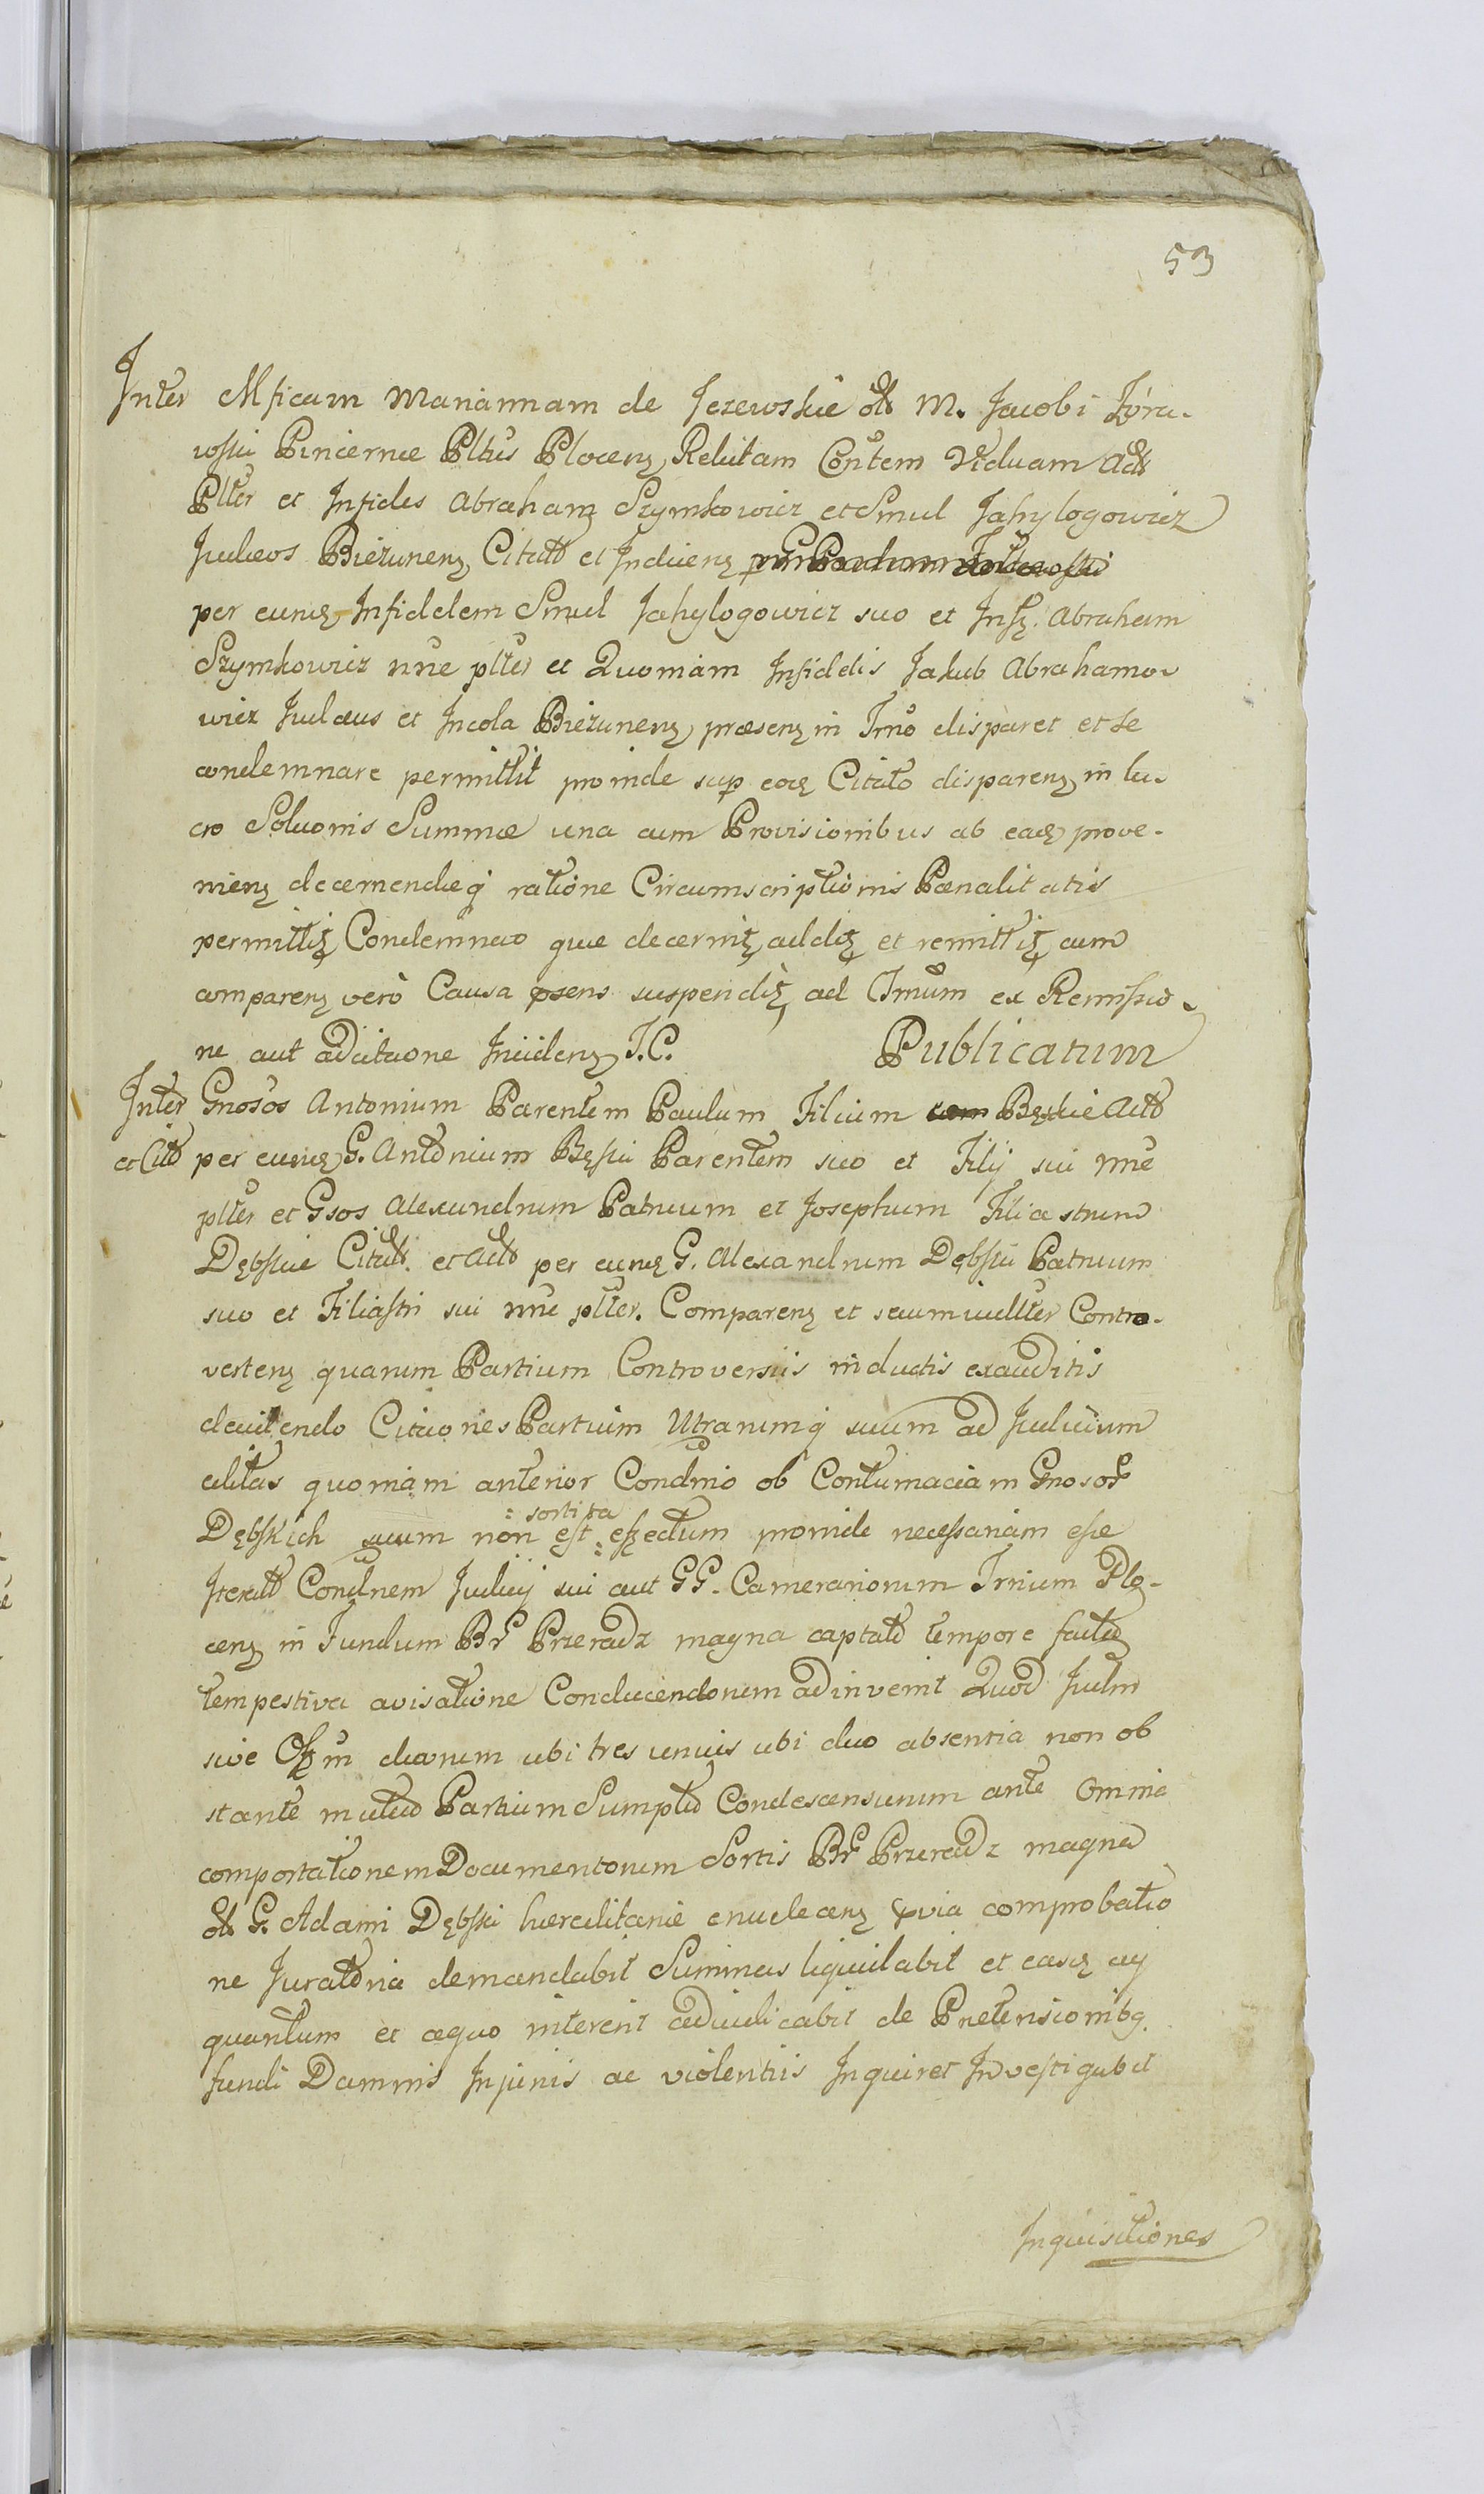 53
Inter Mficam Mariannam de Jezewskie olt M. Jacobi Zóra-
wski Pincernæ Pltus Plocen Relictam Contem Viduam Act
Plter et Infides Abraham Szymkowicz et Smul Jahylogowicz
Judæos Biezunen Citat et Inducen
per eund Infidelem Smul Jahylogowicz suo et Inf. Abraham
Szymkowicz nne plter et Quoniam Infidelis Jakub Abrahamo-
wicz Judæus et Incola Biezunen præsen in Trno disparet et se
condemnare permittit proinde sup eod Citato disparen in lu-
cro Soluonis Summæ una cum Provisionibus ab eade prove-
nien decernendæq ratione Circumscriptionis Pœnalitatis
permittit Condemnao quæ decernit addit et remittit cum
comparen verò Causa psens suspendit ad Trnum ex Remissio-
ne aut adcitaone Inciden T.C. Publicatum
Inter Gnosos Antonium Parentem Paulum Filium Bęskie Act
et Cit per eund G. Antonium Bęski Parentem suo et Filij sui nne
plter et Gsos Alexandrum Patruum et Josephum Filiastrum
Dębskie Citat. et Act per eund G. Alexandrum Dębski Patruum
suo et Filiastri sui nne plter. Comparen et secum iudlter Contro-
verten quarum Partium Controversiis inductis exauditis
devitendo Citaones Partium Utrarumq suum ad Judicium
alitas quoniam anterior Condnio ob Contumaciam Gnosor
Dębskich suum non est : sortita : effectum proinde necessariam esse
Iterat Condnem Judicij sui aut GG. Camerariorum Trnium Plo-
cen in Fundum Br Przeradz magna captato tempore facta
tempestiva avisatione Conducendorum adinvenit Quod Judm
sive Offm duorum ubi tres unius ubi duo absentia non ob
stante mutuo Partium Sumptu Condescensurum ante Omnia
comportationem Documentorum Sortis Br Przeradz magna
olt G. Adami Dębski hæreditariæ enuclean prvia comprobatio
ne Juratoria demandabit Summas liquidabit et easd cuj
quantum et æquo intererit adiudicabit de Prætensionibq
fundi Damnis Injuriis ac violentiis Inquiret Investigabit
Inquisitiones